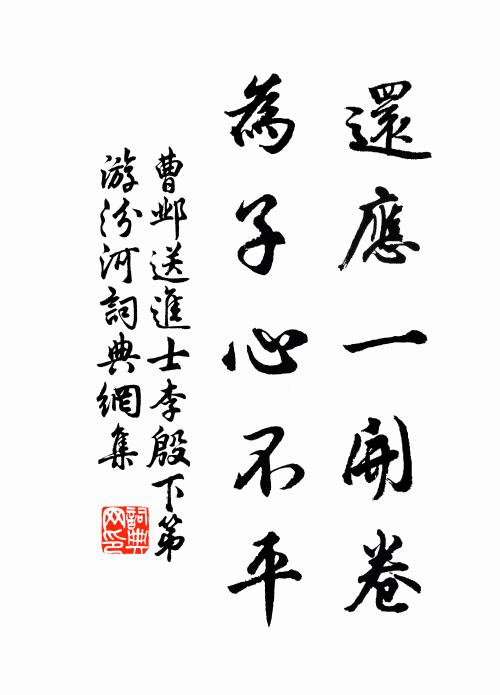 還應一開卷
為子心不平
曹邺送進士李殷下第
游汾河詞典網集
詞典
网印